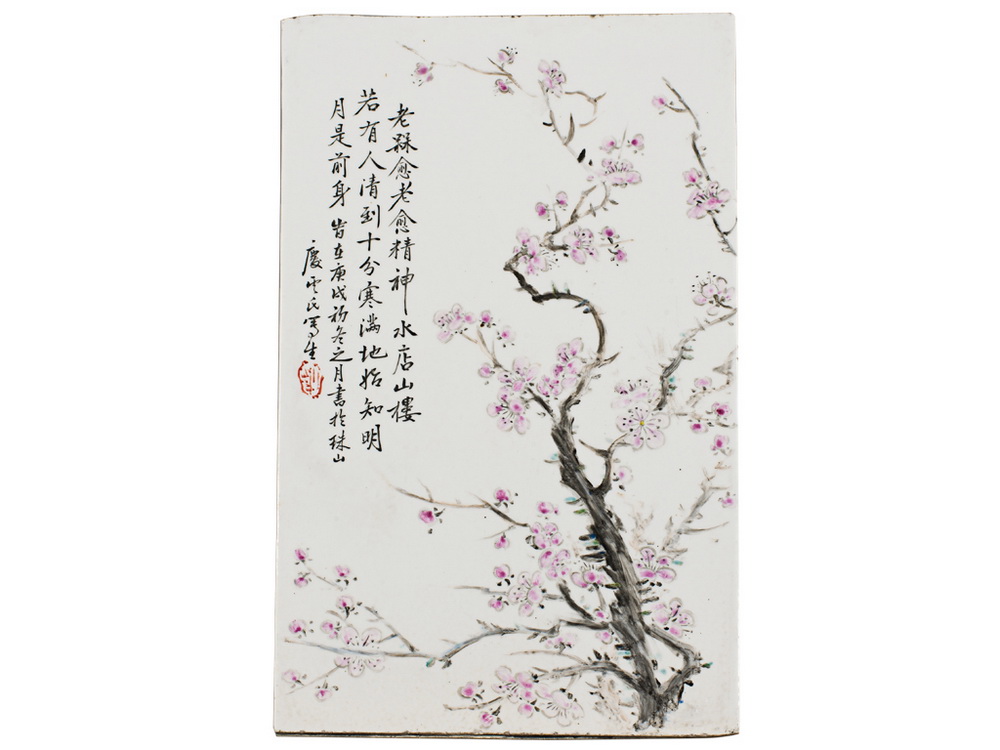 老槑愈老愈精神水店山樓
若有人清到十分寒滿地始知明
月是前身 旹在庚戌初冬之月書於珠山
慶雲氏寫生